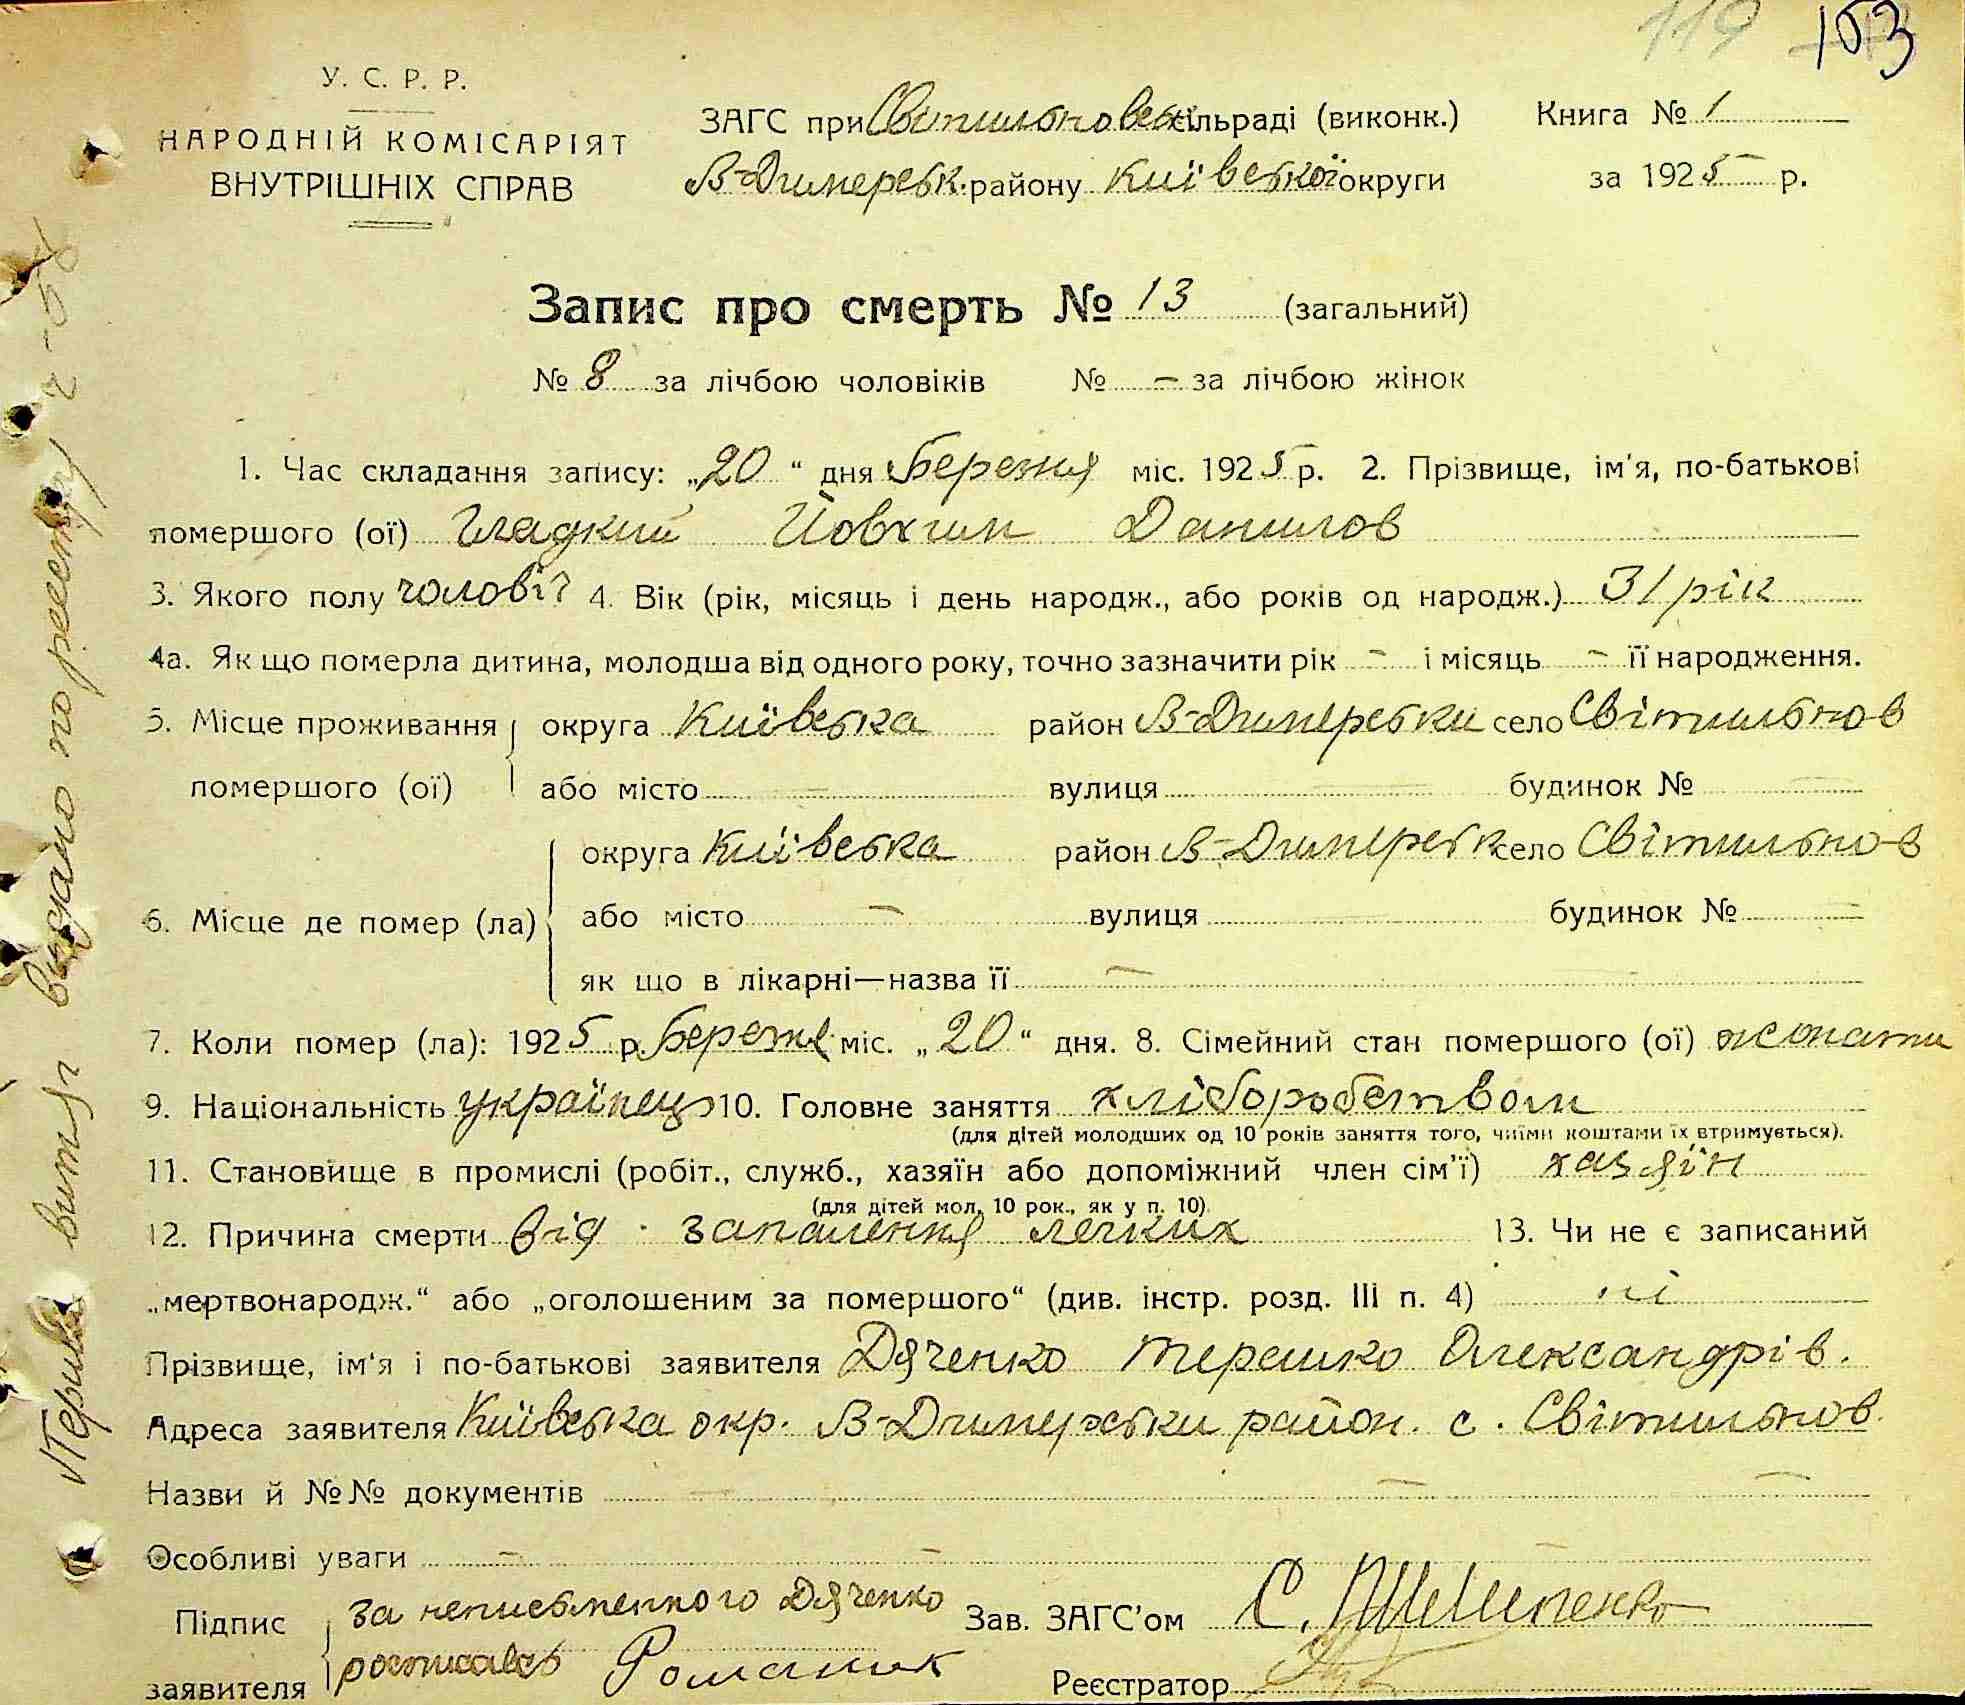 119 103
У. С. Р. Р.
НАРОДНІЙ КОМІСАРІЯТ
ВНУТРІШНІХ СПРАВ
ЗАГС при Світильновск сільраді (виконк.) Книга № 1
В-Димерськ. району Київської округи за 1925 р.
Запис про смерть № 13 (загальний)
№ 8 за лічбою чоловіків № — за лічбою жінок
1. Час складання запису: „20“ дня Березня міс. 1925 р. 2. Прізвище, ім'я, по-батькові
помершого (ої) Гладкий Йовхим Данилов
3. Якого полу чоловіч 4. Вік (рік, місяць і день народж., або років од народж.) 31 рік
4а. Як що померла дитина, молодша від одного року, точно зазначити рік — і місяць — її народження.
5. Місце проживання округа Київська район В-Димерськи село Світильнов
помершого (ої) або місто — вулиця — будинок № —
округа Київська район В-Димерськ село Світильнов
6. Місце де помер (ла) або місто — вулиця — будинок № —
як що в лікарні—назва її —
7. Коли помер (ла): 1925 р. Березня міс. „20“ дня. 8. Сімейний стан помершого (ої) жонати
9. Національність українець 10. Головне заняття хліборобством
(для дітей молодших од 10 років заняття того, чиїми коштами їх втримується).
11. Становище в промислі (робіт., служб., хазяїн або допоміжний член сім'ї) хазяїн
(для дітей мол. 10 рок., як у п. 10).
12. Причина смерти від запалення легких 13. Чи не є записаний
„мертвонародж.“ або „оголошеним за помершого“ (див. інстр. розд. III п. 4) ні
Прізвище, ім'я і по-батькові заявителя Дяченко Терешко Олександрів.
Адреса заявителя Київська окр. В-Димерськи район. с. Світильнов.
Назви й №№ документів — — —
Особливі уваги — —
Підпис за неписьменного Дяченко Зав. ЗАГС'ом С.
заявителя росписавсь Романик Реєстратор
Первий витяг видано по реєстру